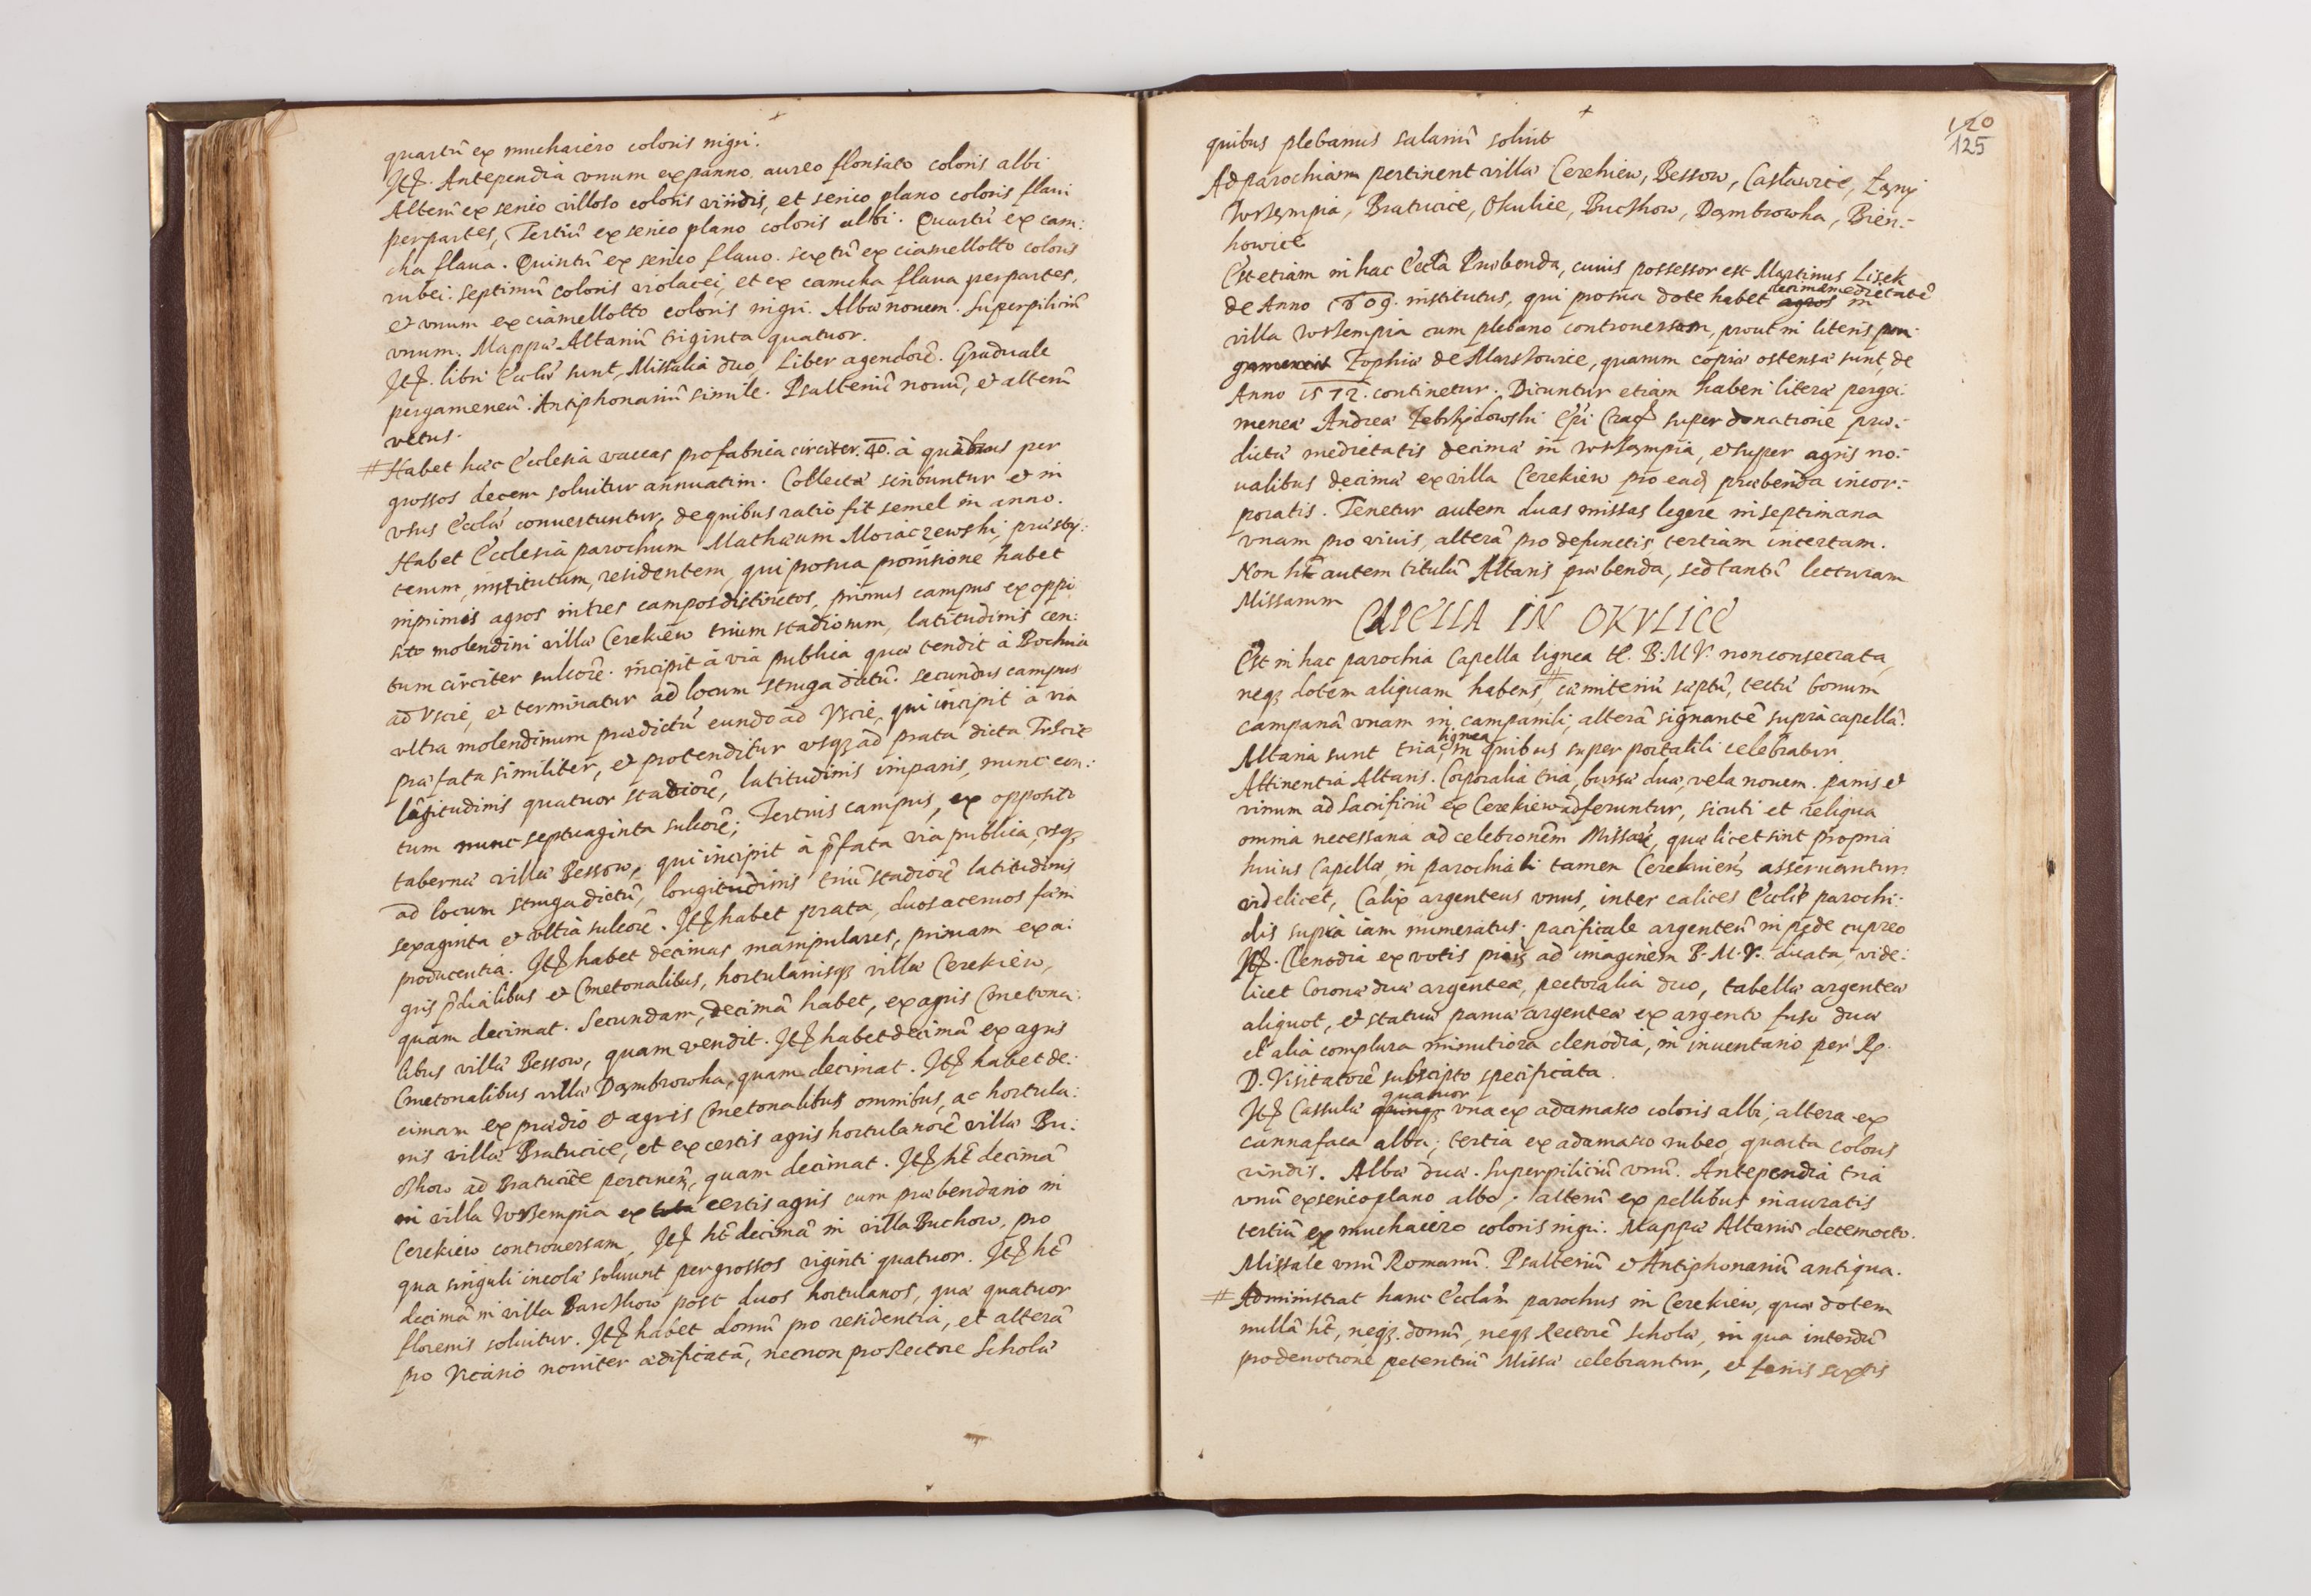 quartũ ex muchaiero coloris nigri.
Itẽ. Antependia vnum ex panno aureo florisato coloris albi
Alterũ ex serico villoso coloris viridis, et serico plano coloris flaui
per partes, Tertiũ ex serico plano coloris albi. Quartũ ex cam:
cha flaua. Quintũ ex serico flauo. sextũ ex ciamellotto coloris
rubei. septimũ coloris violacei, et ex camcha flaua per partes.
et vnum ex ciamellotto coloris nigri. Albæ nouem. Superpiliciũ
vnum. Mappæ Altariũ triginta quatuor.
Itẽ. libri Eccliæ sunt, Missalia duo, Liber agendorũ. Graduale
pergameneũ. Antiphonariũ simile. Psalteriũ nouũ, et alterũ
vetus.
# Habet hæc Ecclesia vaccas pro fabrica circiter 40. à quibus per
grossos decem soluitur annuatim. Collectæ scribuntur et in
vsus Eccliæ conuertuntur, de quibus ratio fit semel in anno.
Habet Ecclesia parochum Mathæum Moiaczewski, præsby:
terum, institutum, residentem, qui pro sua prouisione habet
inprimis agros in tres campos distinctos, primus campus ex oppo
sito molendini villæ Cerekiew trium stadiorum, latitudinis cen:
tum circiter sulcorũ. incipit à via publica quæ tendit à Bochnia
ad Vscie, et terminatur ad locum struga dictũ. secundus campus
vltra molendinum prædictũ eundo ad Vscie, qui incipit à via
præfata similiter, et protenditur vsq3 ad prata dicta Trscie
lõgitudinis quatuor stadiorũ, latitudinis imparis, nunc cen:
tum nunc septuaginta sulcorũ; Tertius campus, ex opposito
tabernæ villæ Bessow, qui incipit à p̃fata via publica, vsq3
ad locum struga dictũ, longitudinis triũ stadiorũ latitudinis
sexaginta et vltra sulcorũ. Itẽ habet prata, duos aceruos fæni
producentia. Itẽ habet decimas manipulares, primam ex a:
gris p̃dialibus et Cmetonalibus, hortulanisq3 villæ Cerekiew,
quam decimat. Secundam, decimã habet, ex agris Cmetona:
libus villæ Bessow, quam vendit. Itẽ habet decimã ex agris
Cmetonalibus villæ Dąmbrowka, quam decimat. Itẽ habet de:
cimam ex prædio et agris Cmetonalibus omnibus, ac hortula:
nis villæ Bratucice, et ex certis agris hortulanorũ villæ Bu:
czkow ad Bratucice pertineñ, quam decimat. Itẽ hẽt decimã
in villa Wrzempia ex tota certis agris cum præbendario in
Cerekiew controuersam, Itẽ hẽt decimã in villa Buchow, pro
qua singuli incolæ soluunt per grossos viginti quatuor. Itẽ hẽt
decimã in villa post duos hortulanos, quæ quatuor
florenis soluitur. Itẽ habet domũ pro residentia, et alterã
pro Vicario nouiter ædificatã, necnon pro Rectore Scholæ
120
125
quibus plebanus salariũ soluit
Ad parochiam pertinent villæ Cerekiew, Bessow, Caslawice, Łązny
Wrzempia, Bratucice, Okulice, Buczkow, Dąmbrowka, Bień:-
kowice
Est etiam in hac Eccla Præbenda, cuius possessor est Martinus Lisek
de Anno 1609. institutus, qui pro sua dote habet agros decimæ medietatẽ in
villa Wrzempia cum plebano controuersam, prout in literis per:
gameneis Zophiæ de Marszowice, quarum copiæ ostensæ sunt, de
Anno 1512. continetur. Dicuntur etiam haberi literæ perga:
meneæ Andreæ Zebrzydowski Ep̃i Cracɔ̃ super donatione præ:-
dictæ medietatis decimæ in Wrząmpia, et super agris no:-
ualibus decimæ ex villa Cerekiew pro ead præbenda incor:-
poratis. Tenetur autem duas missas legere in septimana
vnam pro viuis, alterã pro defunctis tertiam incertam.
Non hẽt autem titulũ Altaris præbenda, sed tantũ lecturam
Missarum
CAPELLA IN OKVLICE
Est in hac parochia Capella lignea tt. B. M. V. non consecrata,
neq3 dotem aliquam habens, # cæmiteriũ sæptũ, tectũ bonum
campanã vnam in campanili, alterã signantẽ supra capellã.
Altaria sunt tria lignea, in quibus super portatili celebratur.
Attinentia Altaris. Corporalia tria, bursæ duæ, vela nouem. panis et
vinum ad sacrificiũ ex Cerekiew adferuntur, sicuti et reliqua
omnia necessaria ad celebrionẽm Missarũ, quæ licet sint propria
huius Capellæ, in parochiali tamen Cerekuieñ, asseruantur
videlicet, Calix argenteus vnus, inter calices Eccliæ parochi:
alis supra iam numeratus. pacificale argenteũ in pede cupreo
Itẽ. Clenodia ex votis piis ad imaginem B. M. V. dicata, vide:
licet Coronæ duæ argenteæ, pectoralia duo, tabellæ argenteæ
aliquot, et statuæ paruæ argenteæ ex argento fuso duæ
et alia complura minutiora clenodia, in inuentario per R.
D. Visitatorẽ subscripto specificata.
Itẽ Cassulæ quinq3 quatuor vna ex adamasco coloris albi, altera ex
cannafaca alba; tertia ex adamasco rubeo, quarta coloris
viridis. Albæ duæ. Superpiliciũ vnũ. Antependia tria
vnũ ex serico plano albo; alterũ ex pellibus inauratis
tertiũ ex muchaiero coloris nigri. Mappæ Altariũ decemocto.
Missale vnũ Romanũ. Psalteriũ et Antiphonariũ antiqua.
# Administrat hanc Ecclam parochus in Cerekiew, quæ dotem
nullã hẽt, neq3 domũ, neq3 Rectorẽ Scholæ, in qua interdũ
pro deuotione petentiũ Missæ celebrantur, et feriis sextis